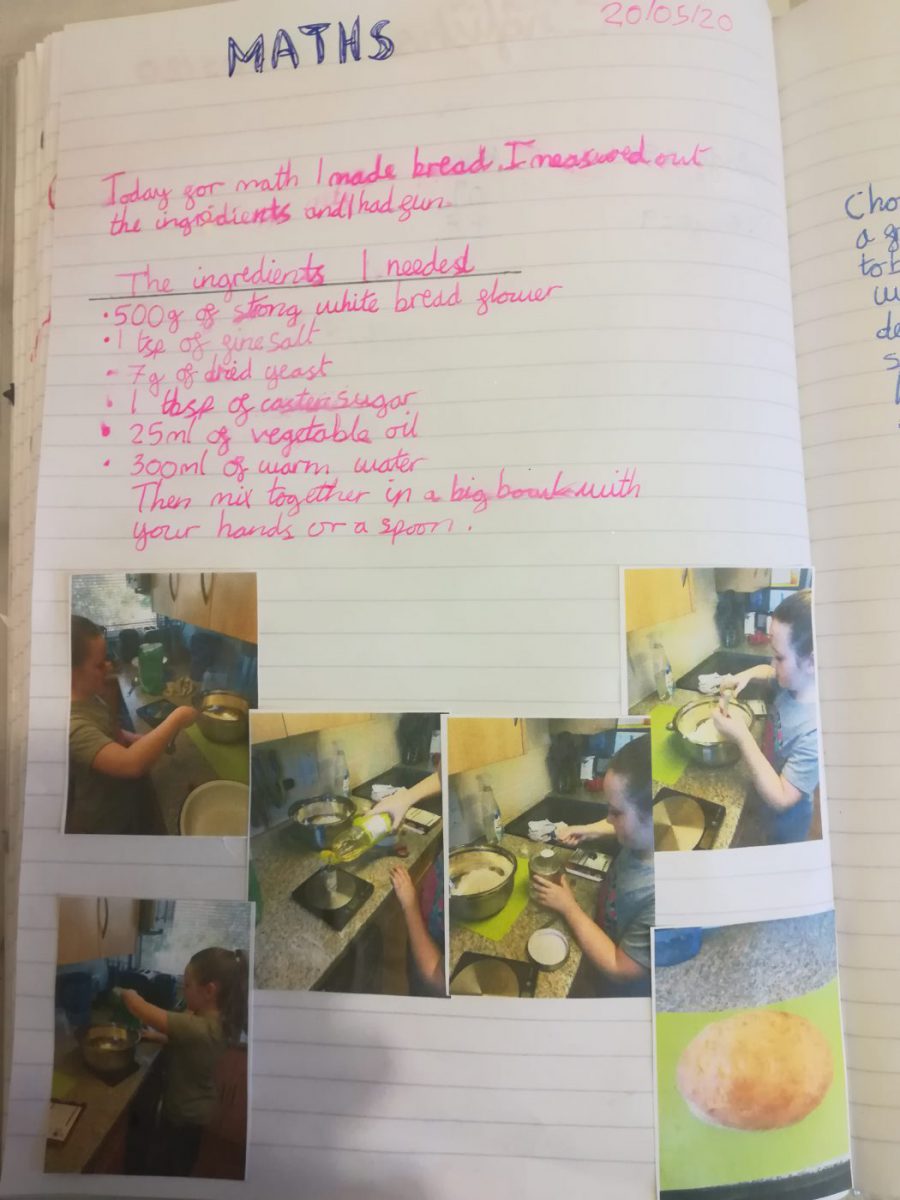 MATHS
20/05/20
Today for math I made bread. I measured out
the ingredients and I had fun.
The ingredients I needed
• 500g of strong white bread flower
• 1 tsp of fine salt
- 7g of dried yeast
• 1 tbsp of caster sugar
• 25ml of vegetable oil
• 300ml of warm water
Then mix together in a big bowl with
your hands or a spoon.
Cho
a g
to b
w
de
s